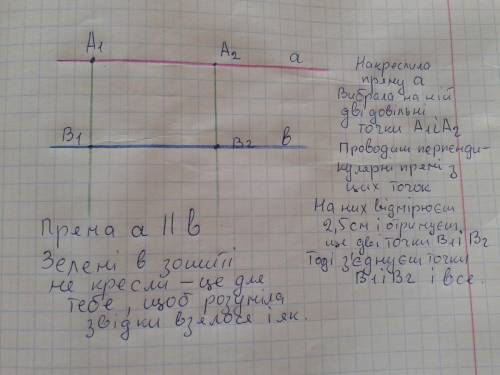 A1 A2 a
B1 B2 b
Накреслила
пряму a
Вибрала на ній
дві довільні
точки A1 і A2
Проводиш перпенди-
кулярні прямі з
цих точок
На них відмірюєш
2,5 см і отримуєш
ще дві точки B1 і B2
Тоді з'єднуєш точки
B1 і B2 і все.
Пряма a || b
Зелені в зошиті
не кресли – це для
тебе, щоб розуміла
звідки взялося і як.